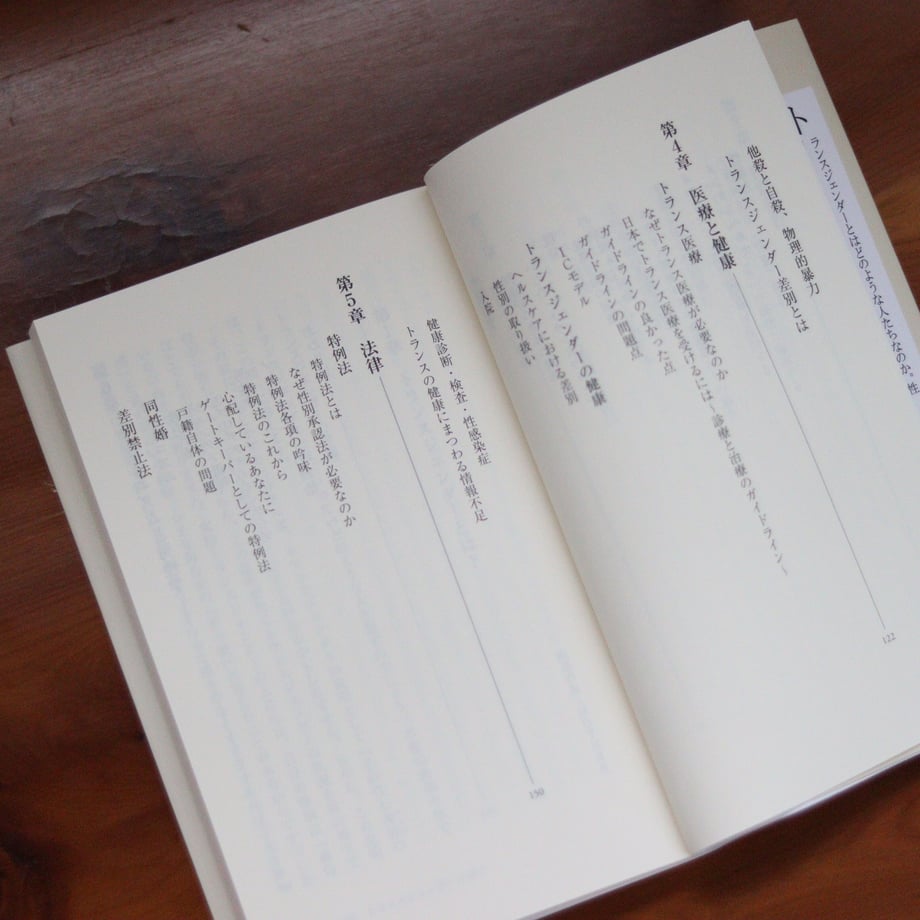 ト
ランスジェンダーとはどのような人たちなのか。性
他殺と自殺、物理的暴力
トランスジェンダー差別とは
第4章 医療と健康
122
トランス医療
なぜトランス医療が必要なのか
日本でトランス医療を受けるには〜診療と治療のガイドライン〜
ガイドラインの良かった点
ガイドラインの問題点
ICモデル
トランスジェンダーの健康
ヘルスケアにおける差別
性別の取り扱い
入院
健康診断・検査・性感染症
トランスの健康にまつわる情報不足
第5章 法律
150
特例法
特例法とは
なぜ性別承認法が必要なのか
特例法各項の吟味
特例法のこれから
心配しているあなたに
ゲートキーパーとしての特例法
戸籍自体の問題
同性婚
差別禁止法